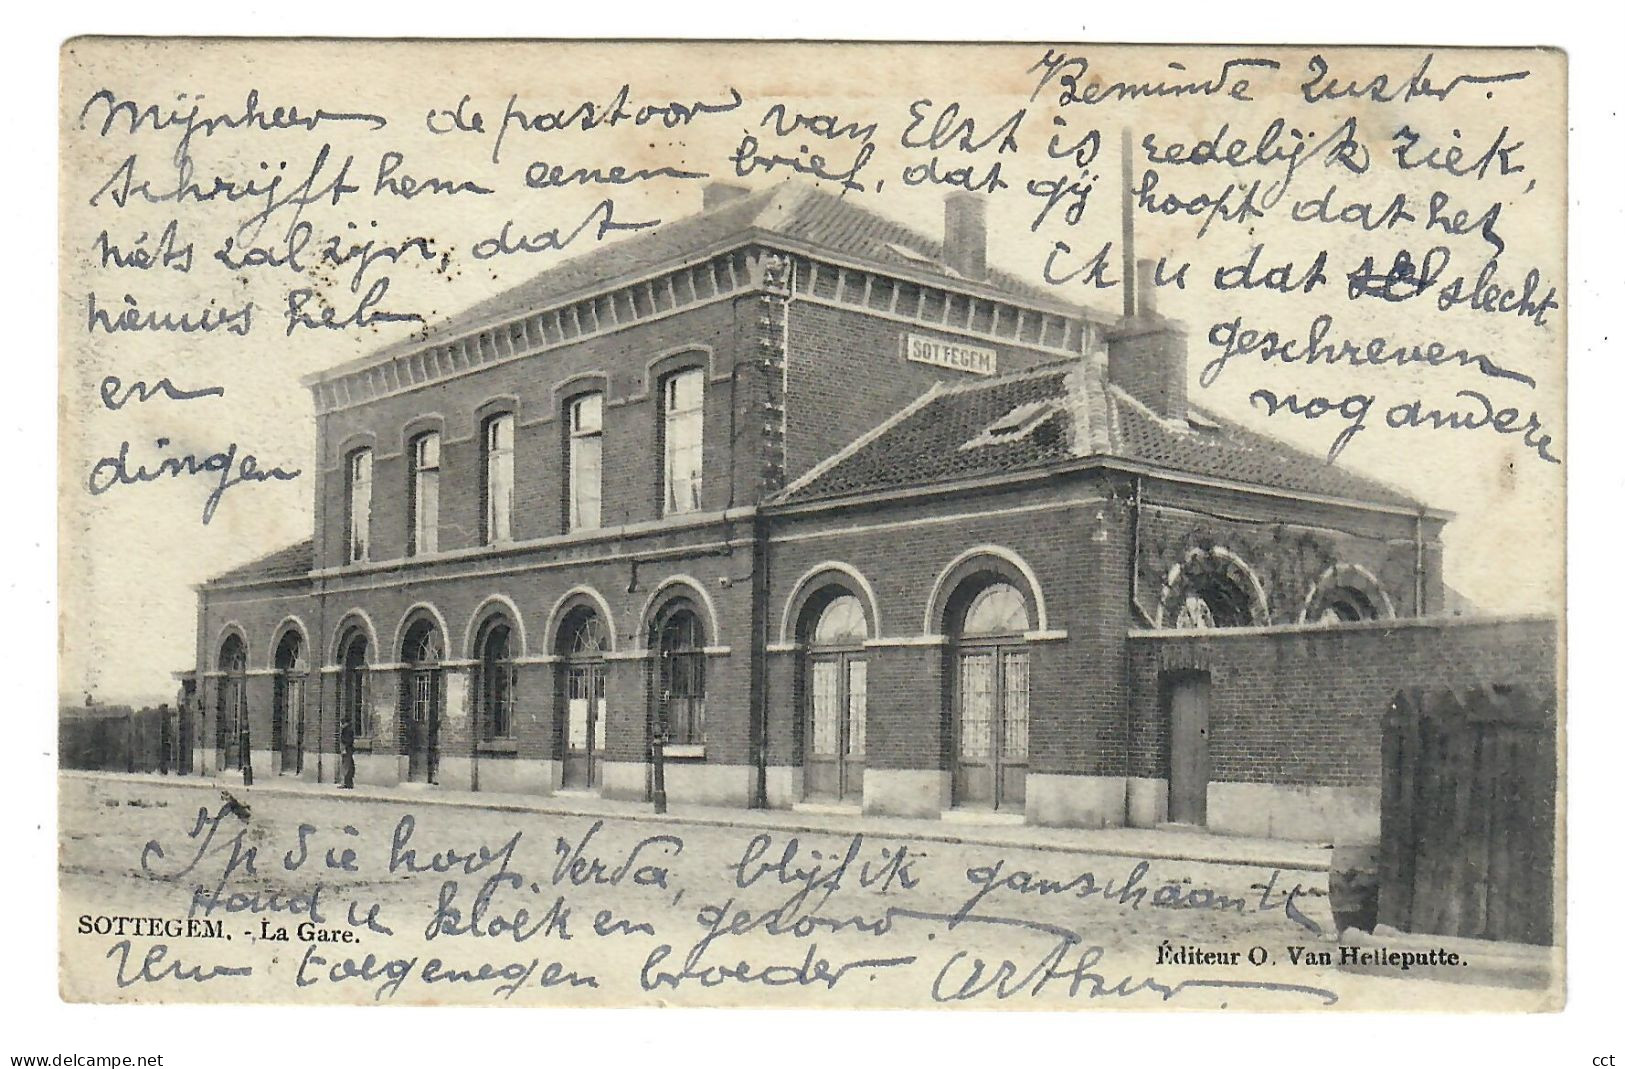 Beminde Zuster.
Mijnheer de pastoor van Elst is redelijk ziek,
schrijft hem eenen brief, dat gij hoopt dat het
niets zal zijn, dat ik u dat slecht
nieuws heb geschreven
en nog andere
dingen
SOTTEGEM
In die hoop, blijf ik
Houd u kloek en gezond.
SOTTEGEM. - La Gare.
Uw toegenegen broeder. Arthur
Éditeur O. Van Helleputte.
www.delcampe.net
cct